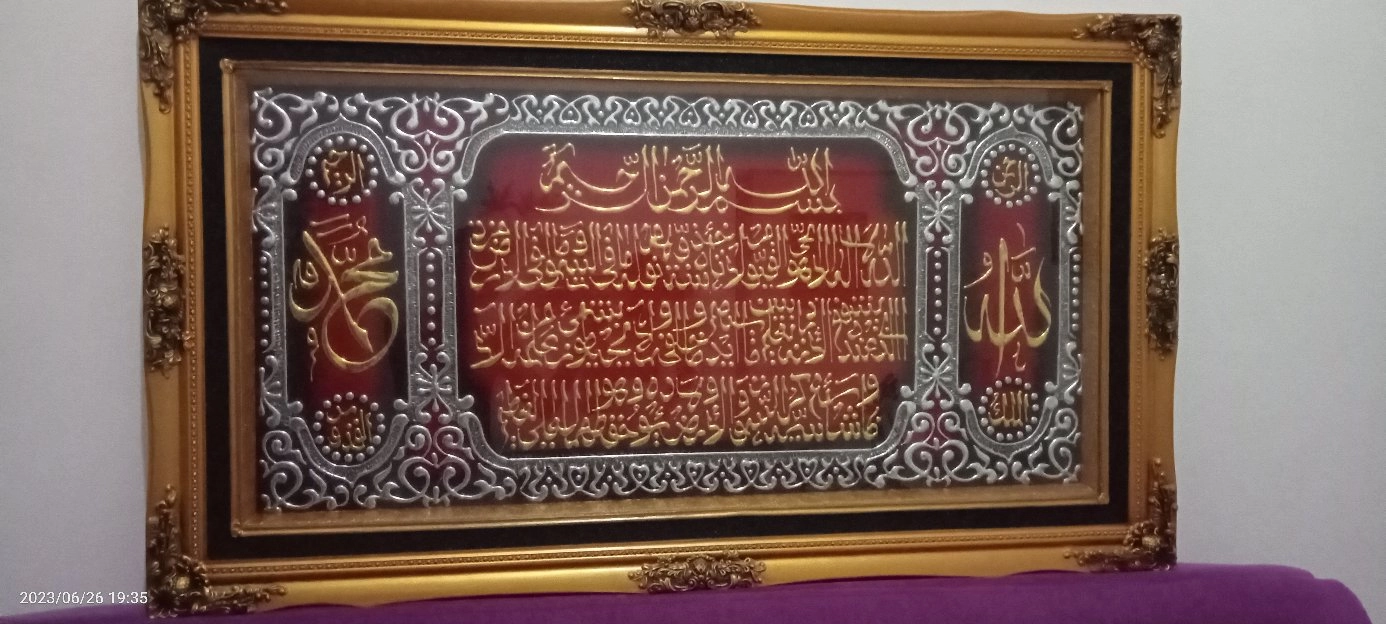 بسم الله الرحمن الرحيم
الله لا إله إلا هو الحي القيوم لا تأخذه سنة ولا نوم له ما في السموات وما في الأرض
من ذا الذي يشفع عنده إلا بإذنه يعلم ما بين أيديهم وما خلفهم ولا يحيطون بشيء من علمه إلا
بما شاء وسع كرسيه السموات والأرض ولا يؤده حفظهما وهو العلي العظيم
الرحمن
الله
الملك
الرحيم
محمد
القدوس
2023/06/26 19:35